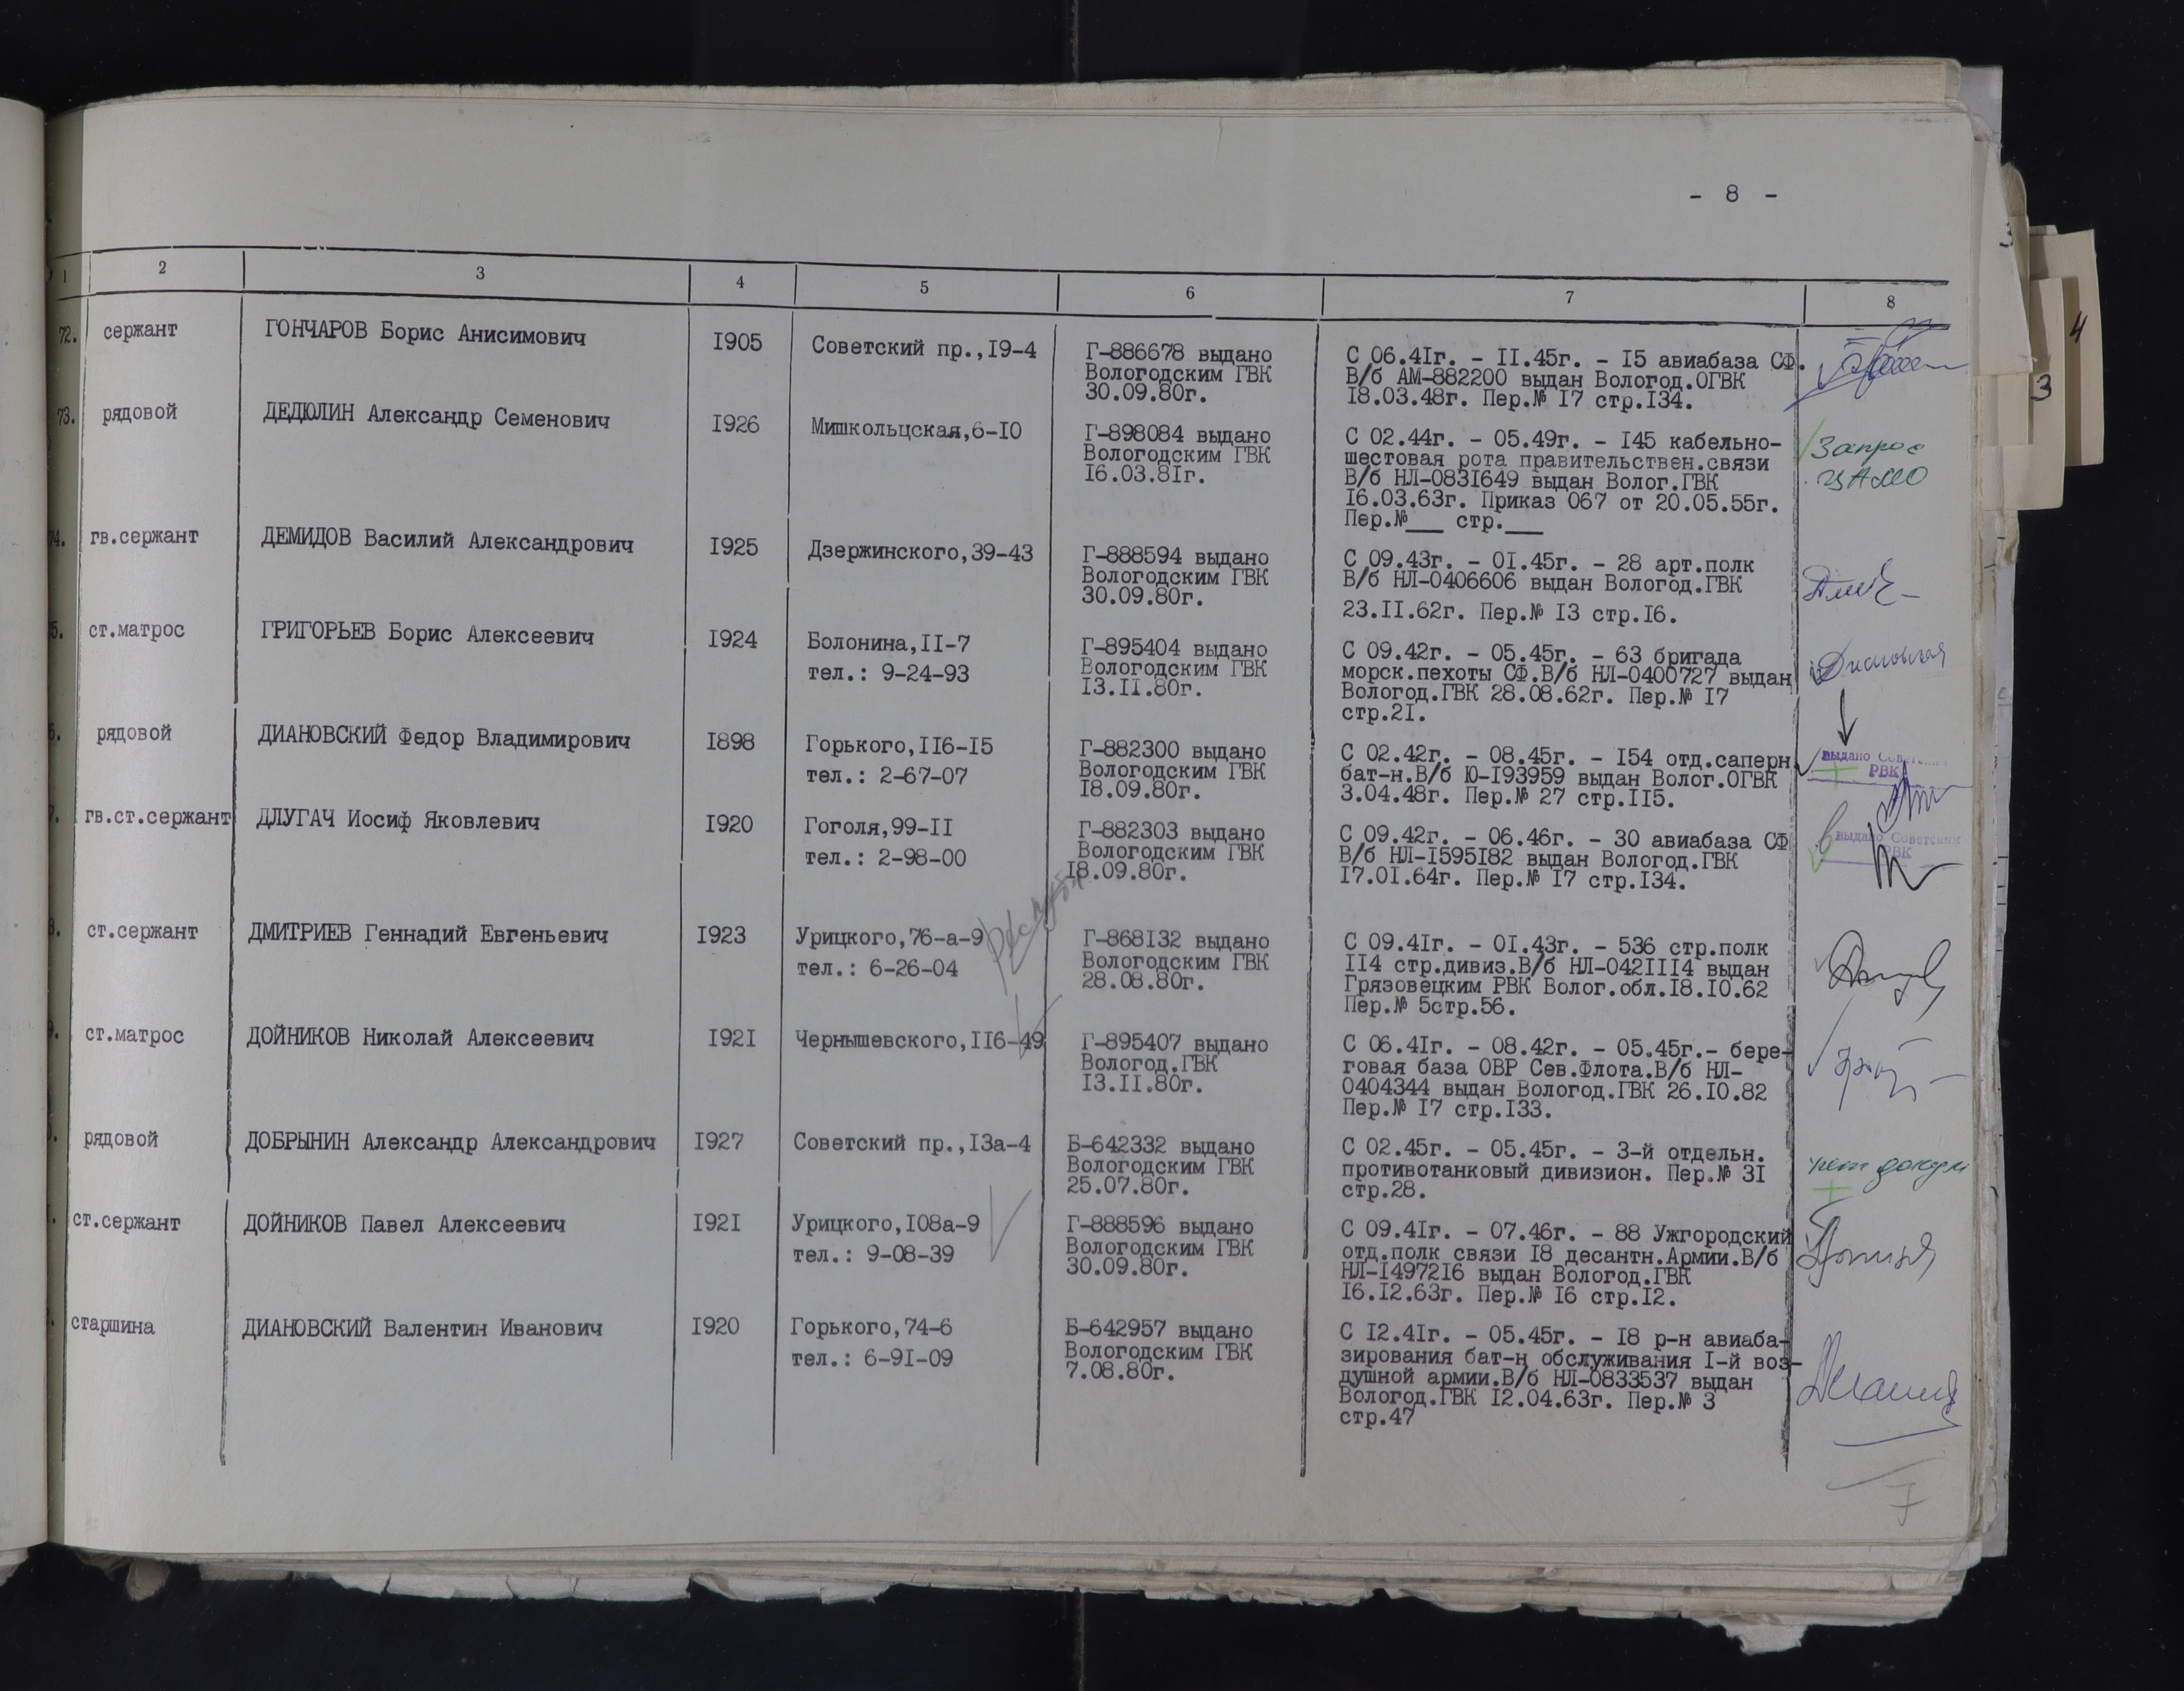 - 8 -
1 2 3 4 5 6 7 8
72. сержант ГОНЧАРОВ Борис Анисимович 1905 Советский пр.,19-4 Г-886678 выдано С 06.41г. - 11.45г. - 15 авиабаза СФ.
Вологодским ГВК В/б АМ-882200 выдан Вологод.ОГВК
30.09.80г. 18.03.48г. Пер.№ 17 стр.134.
73. рядовой ДЕДЮЛИН Александр Семенович 1926 Мишкольцская,6-10 Г-898084 выдано С 02.44г. - 05.49г. - 145 кабельно- Запрос
Вологодским ГВК шестовая рота правительствен.связи ЦАМО
16.03.81г. В/б НЛ-0831649 выдан Волог.ГВК
16.03.63г. Приказ 067 от 20.05.55г.
Пер.№___ стр.___
74. гв.сержант ДЕМИДОВ Василий Александрович 1925 Дзержинского,39-43 Г-888594 выдано С 09.43г. - 01.45г. - 28 арт.полк
Вологодским ГВК В/б НЛ-0406606 выдан Вологод.ГВК
30.09.80г. 23.11.62г. Пер.№ 13 стр.16.
5. ст.матрос ГРИГОРЬЕВ Борис Алексеевич 1924 Болонина,11-7 Г-895404 выдано С 09.42г. - 05.45г. - 63 бригада
тел.: 9-24-93 Вологодским ГВК морск.пехоты СФ.В/б НЛ-0400727 выдан
13.11.80г. Вологод.ГВК 28.08.62г. Пер.№ 17
стр.21.
6. рядовой ДИАНОВСКИЙ Федор Владимирович 1898 Горького,116-15 Г-882300 выдано С 02.42г. - 08.45г. - 154 отд.саперн. выдано Советским
тел.: 2-67-07 Вологодским ГВК бат-н.В/б Ю-193959 выдан Волог.ОГВК РВК
18.09.80г. 3.04.48г. Пер.№ 27 стр.115.
7. гв.ст.сержант ДЛУГАЧ Иосиф Яковлевич 1920 Гоголя,99-11 Г-882303 выдано С 09.42г. - 06.46г. - 30 авиабаза СФ выдано Советским
тел.: 2-98-00 Вологодским ГВК В/б НЛ-1595182 выдан Вологод.ГВК РВК
18.09.80г. 17.01.64г. Пер.№ 17 стр.134.
8. ст.сержант ДМИТРИЕВ Геннадий Евгеньевич 1923 Урицкого,76-а-9 Г-868132 выдано С 09.41г. - 01.43г. - 536 стр.полк
тел.: 6-26-04 Вологодским ГВК 114 стр.дивиз.В/б НЛ-0421114 выдан
28.08.80г. Грязовецким РВК Волог.обл.18.10.62
Пер.№ 5стр.56.
9. ст.матрос ДОЙНИКОВ Николай Алексеевич 1921 Чернышевского,116-49 Г-895407 выдано С 06.41г. - 08.42г. - 05.45г.- бере-
Вологод.ГВК говая база ОВР Сев.Флота.В/б НЛ-
13.11.80г. 0404344 выдан Вологод.ГВК 26.10.82
Пер.№ 17 стр.133.
рядовой ДОБРЫНИН Александр Александрович 1927 Советский пр.,13а-4 Б-642332 выдано С 02.45г. - 05.45г. - 3-й отдельн.
Вологодским ГВК противотанковый дивизион. Пер.№ 31
25.07.80г. стр.28.
ст.сержант ДОЙНИКОВ Павел Алексеевич 1921 Урицкого,108а-9 Г-888596 выдано С 09.41г. - 07.46г. - 88 Ужгородский
тел.: 9-08-39 Вологодским ГВК отд.полк связи 18 десантн.Армии.В/б
30.09.80г. НЛ-1497216 выдан Вологод.ГВК
16.12.63г. Пер.№ 16 стр.12.
старшина ДИАНОВСКИЙ Валентин Иванович 1920 Горького,74-6 Б-642957 выдано С 12.41г. - 05.45г. - 18 р-н авиаба-
тел.: 6-91-09 Вологодским ГВК зирования бат-н обслуживания 1-й воз-
7.08.80г. душной армии.В/б НЛ-0833537 выдан
Вологод.ГВК 12.04.63г. Пер.№ 3
стр.47
7
4
3